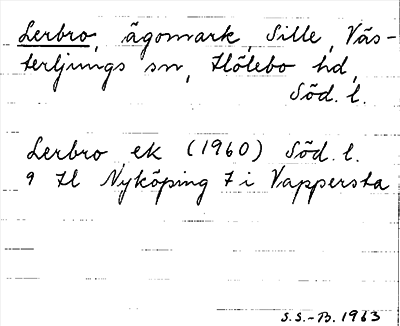 Lerbro, ägomark, Sille, Väs-
terljungs sn, Hölebo hd,
Söd. l.
Lerbro ek (1960) Söd. l.
9 H Nyköping 7 i Vappersta
S.S.-B. 1963